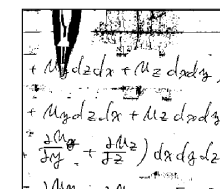 + u_y dz dx + u_z dx dy
+ u_y dz dx + u_z dx dy
∂u_y/∂y + ∂u_z/∂z ) dx dy dz